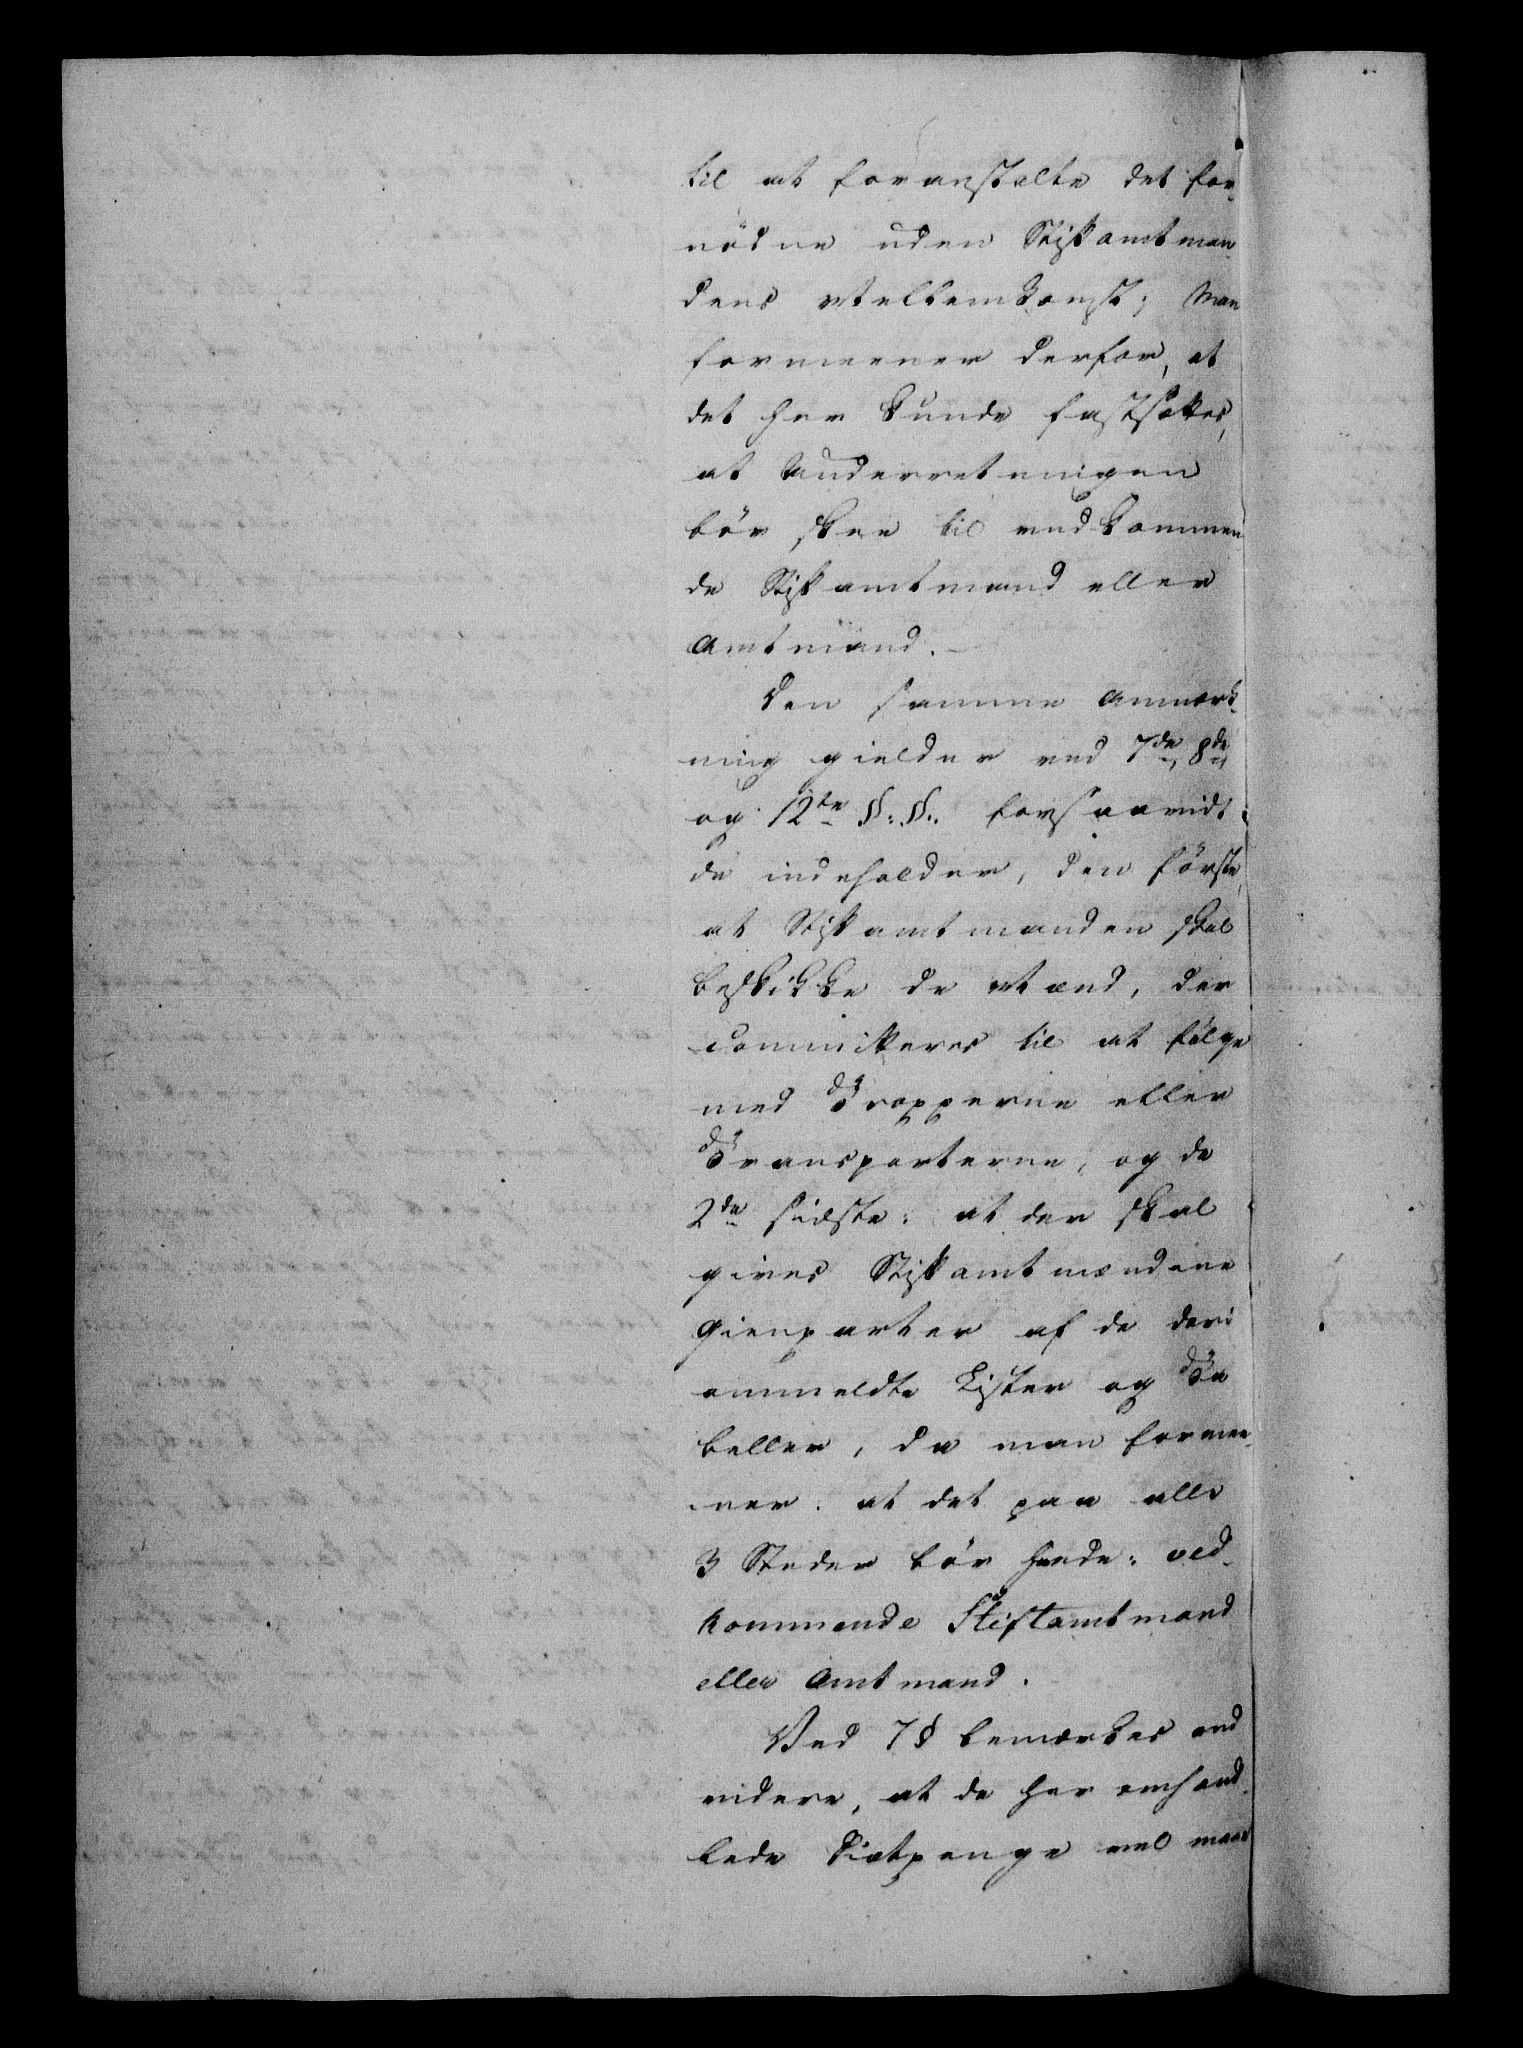 til at foranstalte det for-
nödne uden Stiftamtman-
dens Mellemkomst; Man
formeener derfor, at
det her kunde fastsættes,
at Underretningen
bör skee til vedkommen-
de Stiftamtmand eller
Amtmand. -
Den samme Anmærk-
ning gielder ved 7de, 8de,
og 12te §:§: forsaavidt
de indeholder, den förste,
at Stiftamtmanden skal
beskikke de Mænd, der
committeres til at fölge
med Tropperne eller
Transporterne, og de
2de sidste: at der skal
gives Stiftamtmændene
Gienparter af de deri
ommeldte Lister og Ta
beller, da man formee-
ner: at det paa alle
3 Steder bör hede: ved-
kommende Stiftamtmand
eller Amtmand.
Ved 7 § bemærkes end
videre, at de her omhand-
lede Diætpenge vel maae